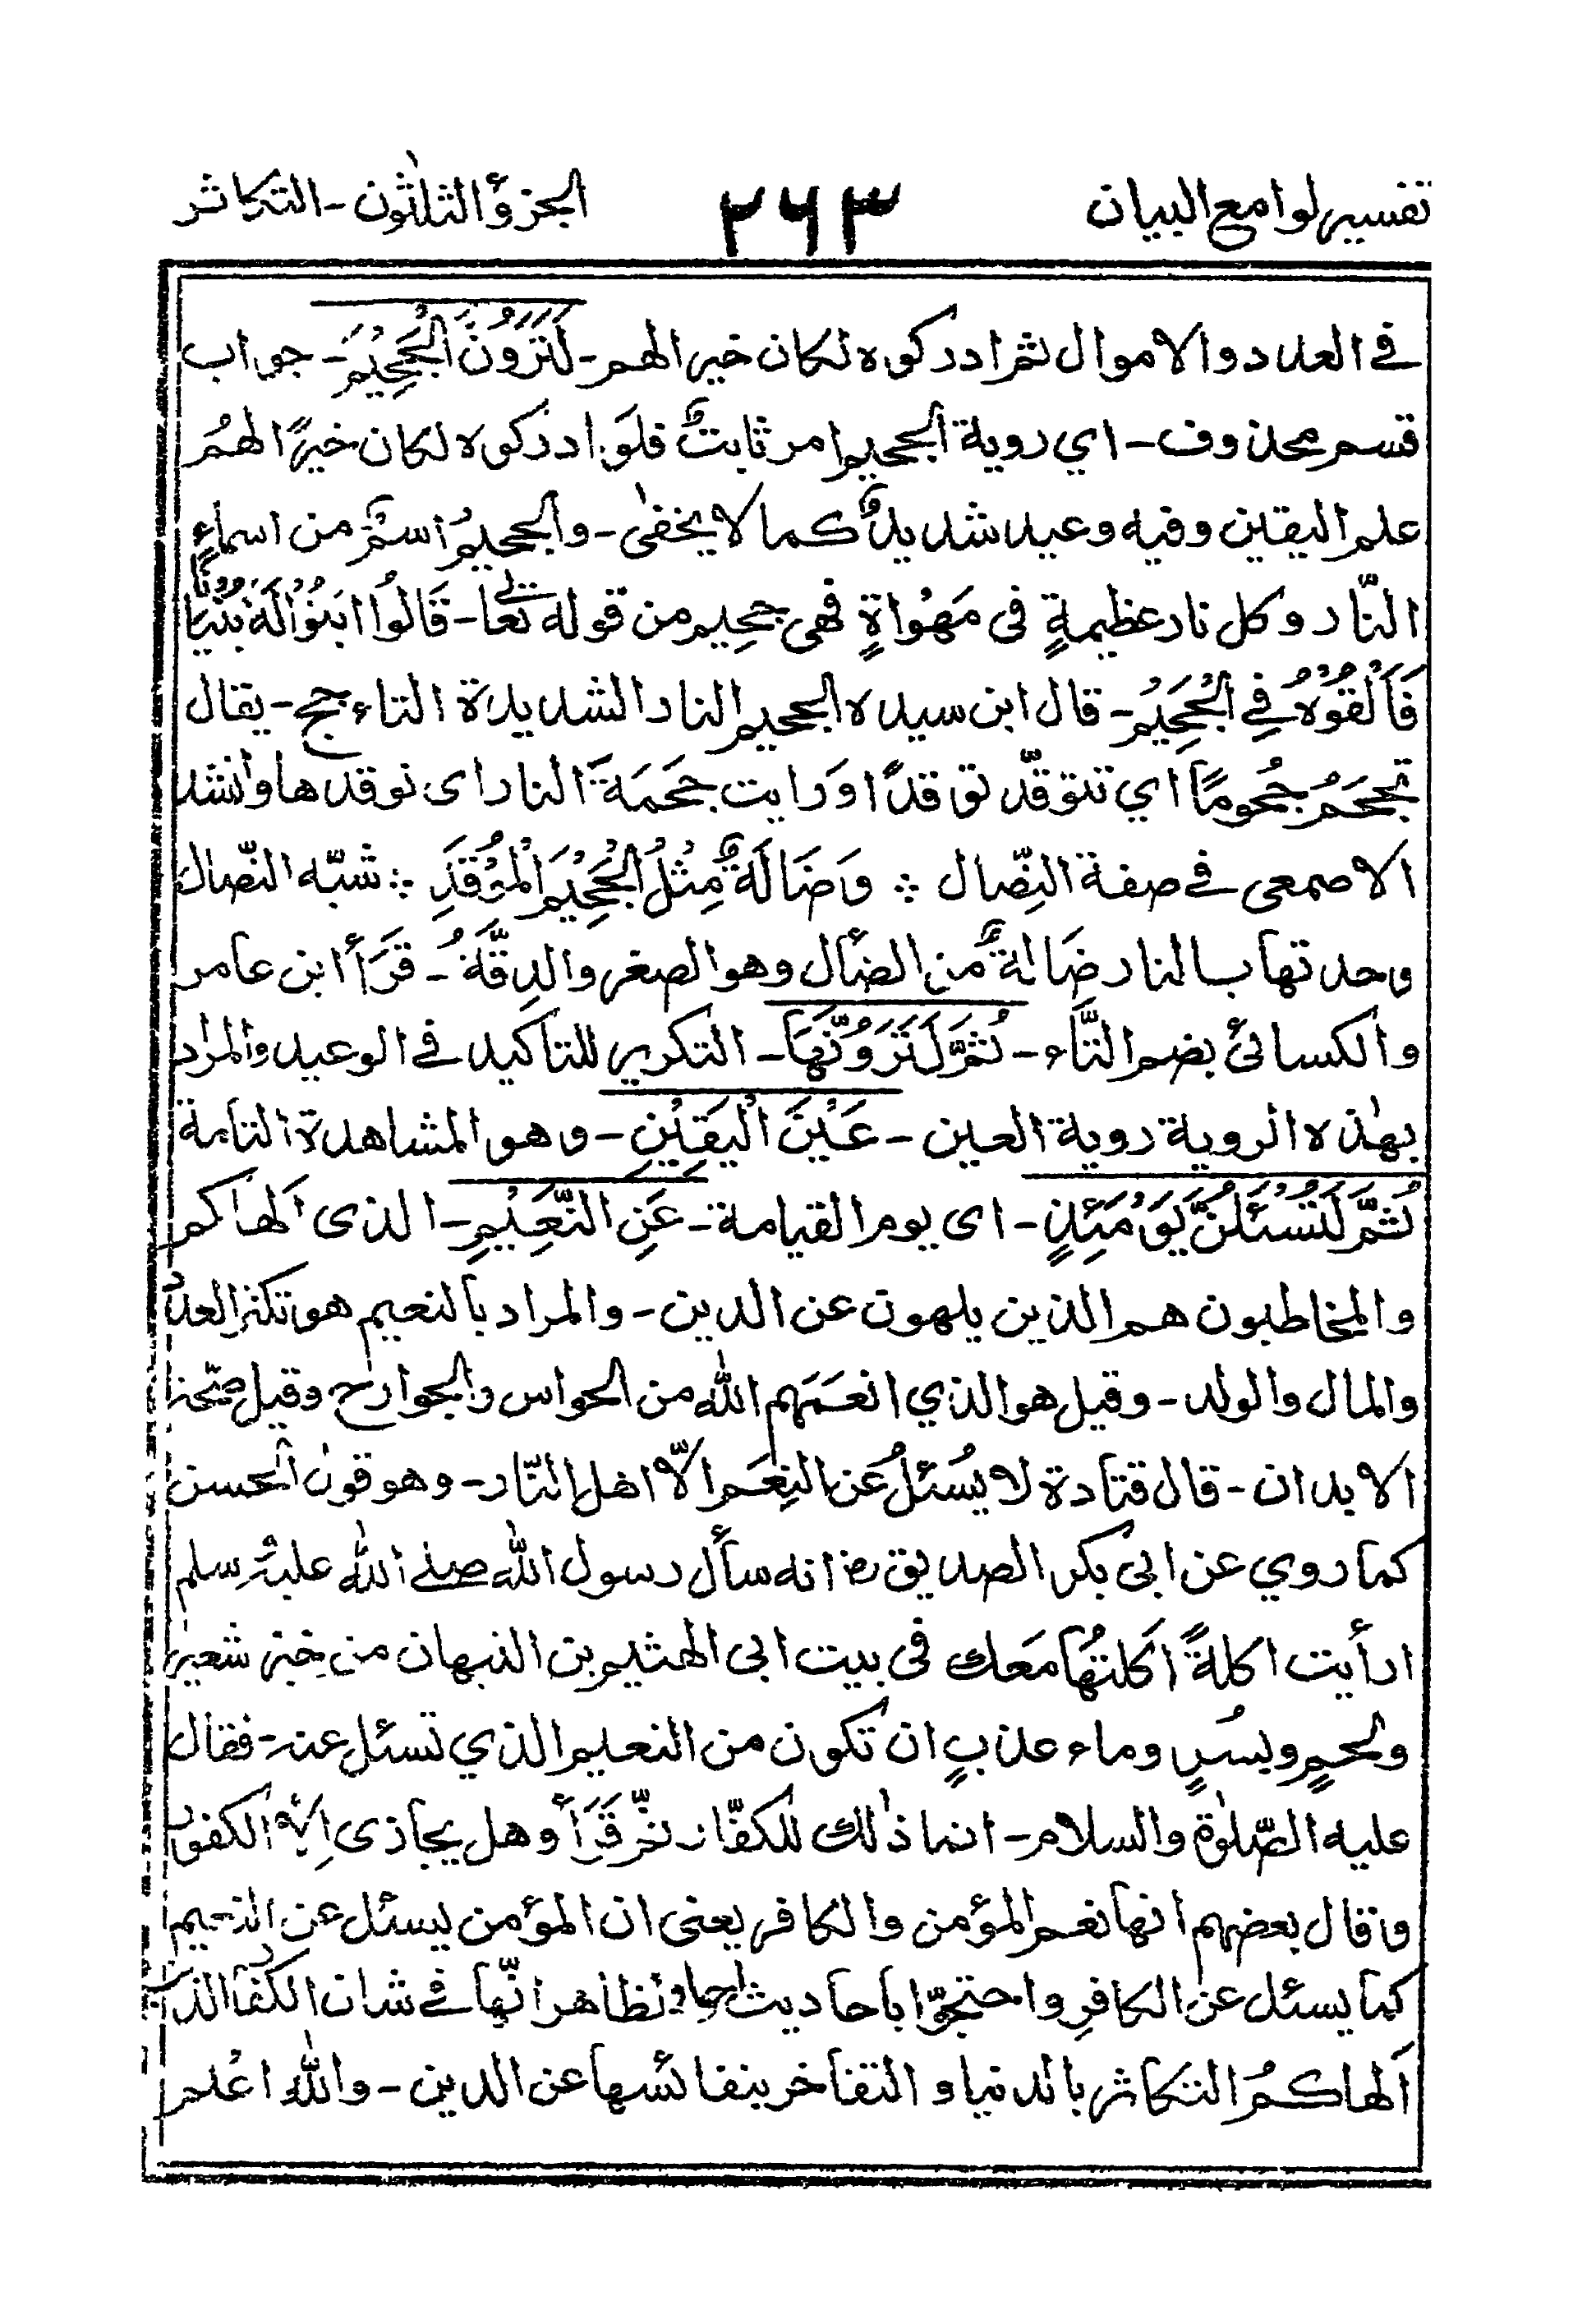 تفسير لوامع البيان ٢٦٣ الجزؤ الثلٰثون - التكاثر
فے العدد والاموال ثم ادركوه لكان خيرا لهم - لَتَرَوُنَّ الْجَحِيْمَ - جواب
قسم محذوف - اي روية الجحيم امر ثابتٌ فلَو ادركوه لكان خيرًا لهمُ
علم اليقين وفيه وعيد شديدٌ كما لا يخفىٰ - والجحيمُ اسمٌ من اسماءِ
النّار وكل نار عظيمةٍ فى مَهْواةٍ فهى جحِيم من قوله تعا - قَالُوا ابْنُوْا لَهٗ بُنْيَانًا
فَاَلْقُوْهُ فِي الْجَحِيْمِ - قال ابن سيده الجحيم النار الشديدة التاءجج - يقال
تجحَمُ جُحومًا اي تتوقّد توقدًا ورايت جحَمَةَ النار اى توقدها وانشد
الاصمعى فے صفة النِّصال ؞ وَضَالَةٌ مِثْلُ الْجَحِيْمِ الْمُوْقَدِ ؞ شبّه النّصال
وحدتها بالنار ضَالةٌ من الضأل وهو الصغر والدِقَّةُ - قَرَأ ابن عامر
والكسائئ بضم التَّاء - ثُمَّ لَتَرَوُنَّهَا - التكرير للتاكيد فے الوعيد والمراد
بهٰذه الروية روية العين - عَيْنَ الْيَقِيْنِ - وهو المشاهدة التامة
ثُمَّ لَتُسْئَلُنَّ يَوْمَئِذٍ - اى يوم القيامة - عَنِ النَّعِيْمِ - الذى اَلهاكم
والمخاطبون هم الذين يلهون عن الدين - والمراد بالنعيم هو تكثر العدد
والمال والولد - وقيل هو الذي انعمَهم الله من الحواس والجوارح وقيل صحّة
الابدان - قال قتادة لا يُسْئلُ عَن النِعَم الّا اهل النّار - وهو قول الحسن
كما روي عن ابى بكر الصديق رض انه سأل رسول الله صلے الله عليه وسلم
ارأيت اكلةً اَكلتُها مَعك فى بيت ابى الهثيم بن النبهان من خبز شعير
ولحمٍ وبسُرٍ وماء عذبٍ ان تكون من النعيم الذي تسئل عنه - فقال
عليه الصّلوٰة والسلام - انما ذٰلك للكفّار ثمّ قَرَأ وهل يجازى اِلّا الكفور
وقال بعضهم انها نعم المؤمن والكافر يعنى ان المؤمن يسئل عن النعيم
كما يسئل عن الكافرِ واحتجّوا باحاديث احاد ظاهر انّها فے شان الكفا الذ
اَلهاكمُ التكاثر بالدنيا و التفاخر بنفائسها عن الدين - والله اعْلم